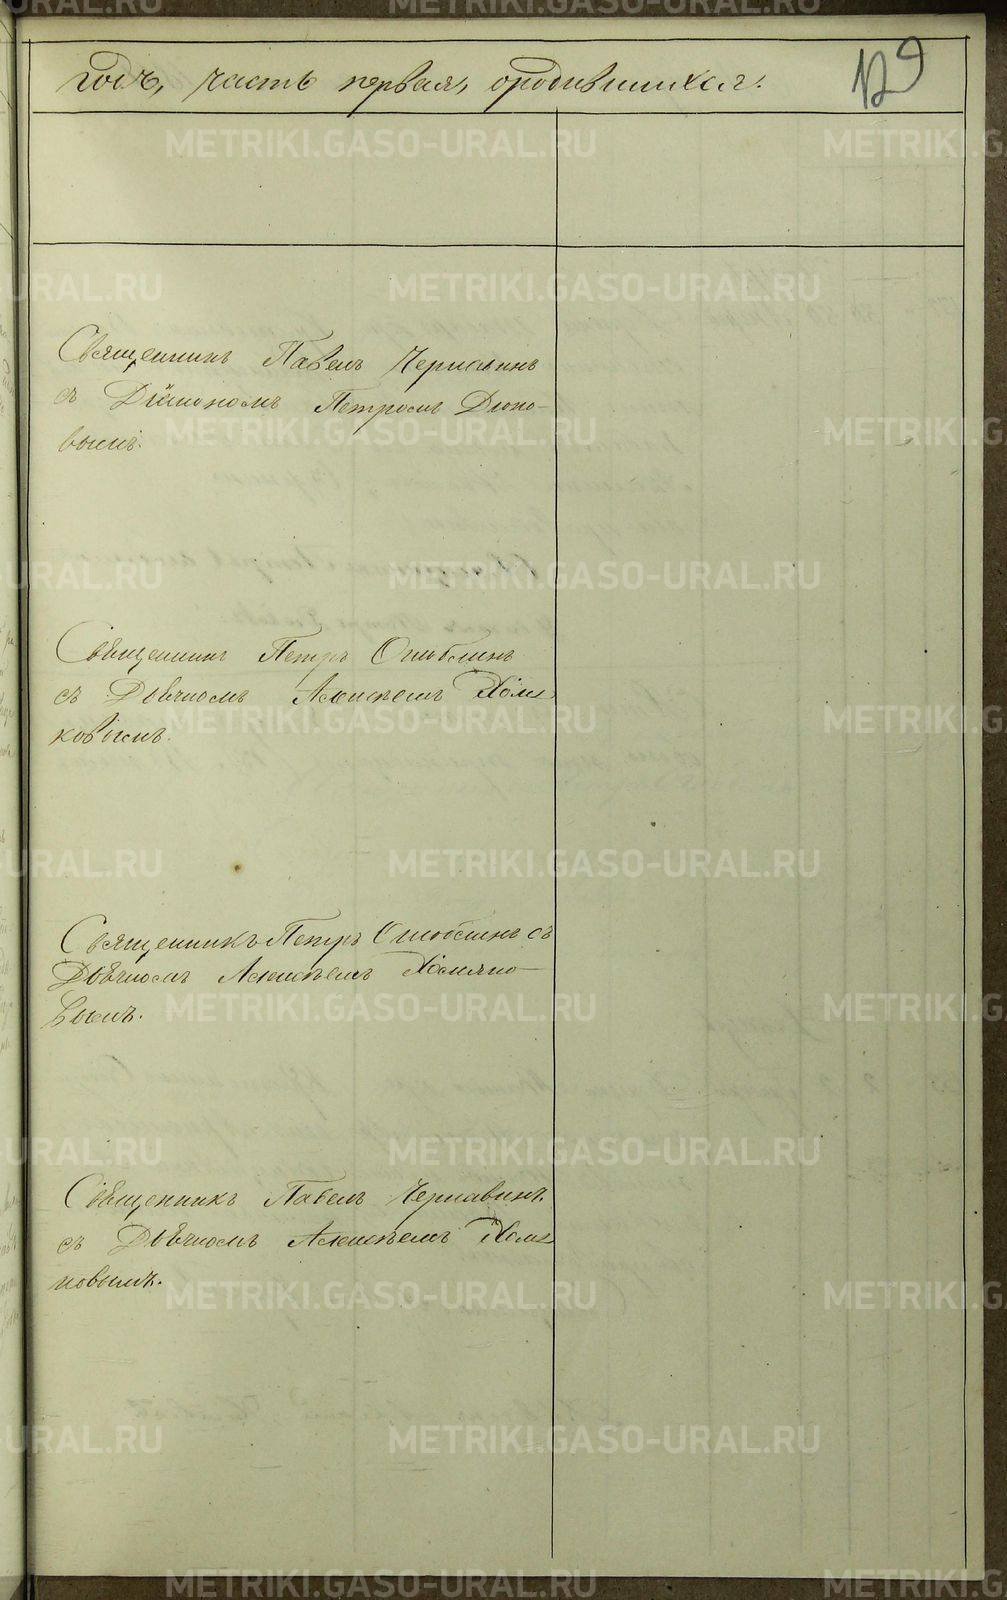 годъ, часть первая, о родившихся.
129
Священникъ Павелъ Чернавинъ
съ Діакономъ Петромъ Дюко-
вымъ.
Священникъ Петръ Оглоблинъ
съ Дьячкомъ Алексѣемъ Холмя
ковымъ.
Священникъ Петръ Оглоблинъ съ
Дьячкомъ Алексѣемъ Холмяко-
вымъ.
Священникъ Павелъ Чернавинъ
съ Дьячкомъ Алексѣемъ Холмя
ковымъ.
METRIKI.GASO-URAL.RU